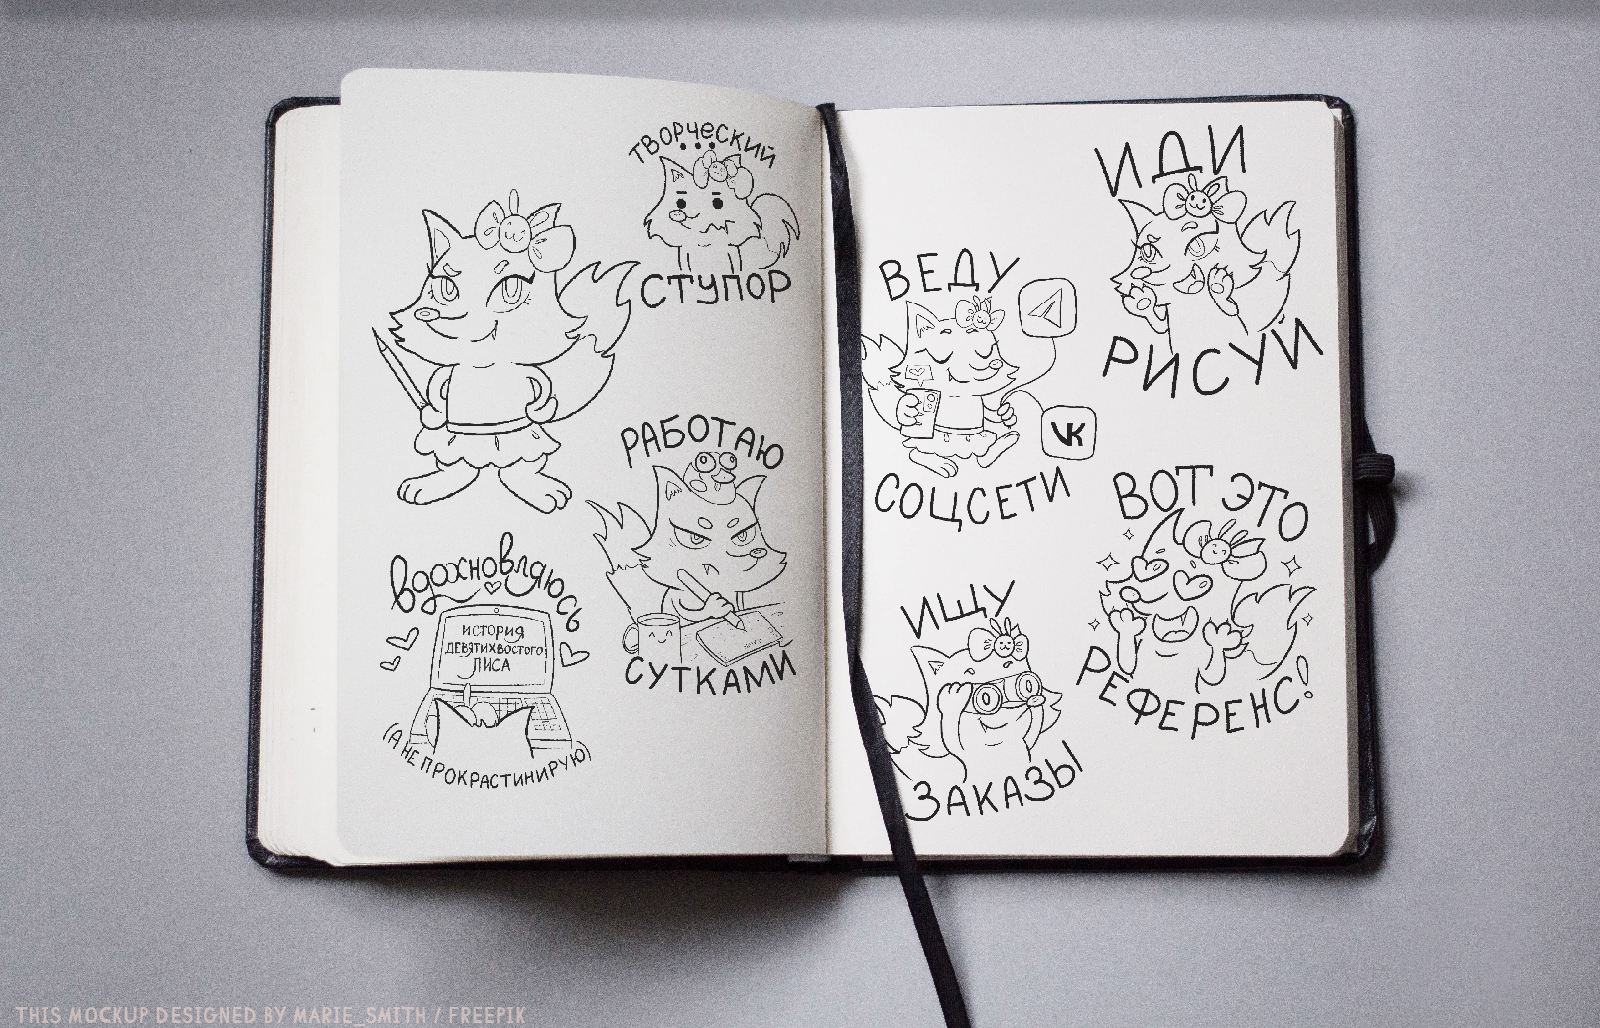 ТВОРЧЕСКИЙ
СТУПОР
РАБОТАЮ
СУТКАМИ
вдохновляюсь
ИСТОРИЯ
ДЕВЯТИХВОСТОГО
ЛИСА
(А НЕ ПРОКРАСТИНИРУЮ)
ИДИ
РИСУЙ
ВЕДУ
VK
СОЦСЕТИ
ВОТ ЭТО
РЕФЕРЕНС!
ИЩУ
ЗАКАЗЫ
THIS MOCKUP DESIGNED BY MARIE_SMITH / FREEPIK